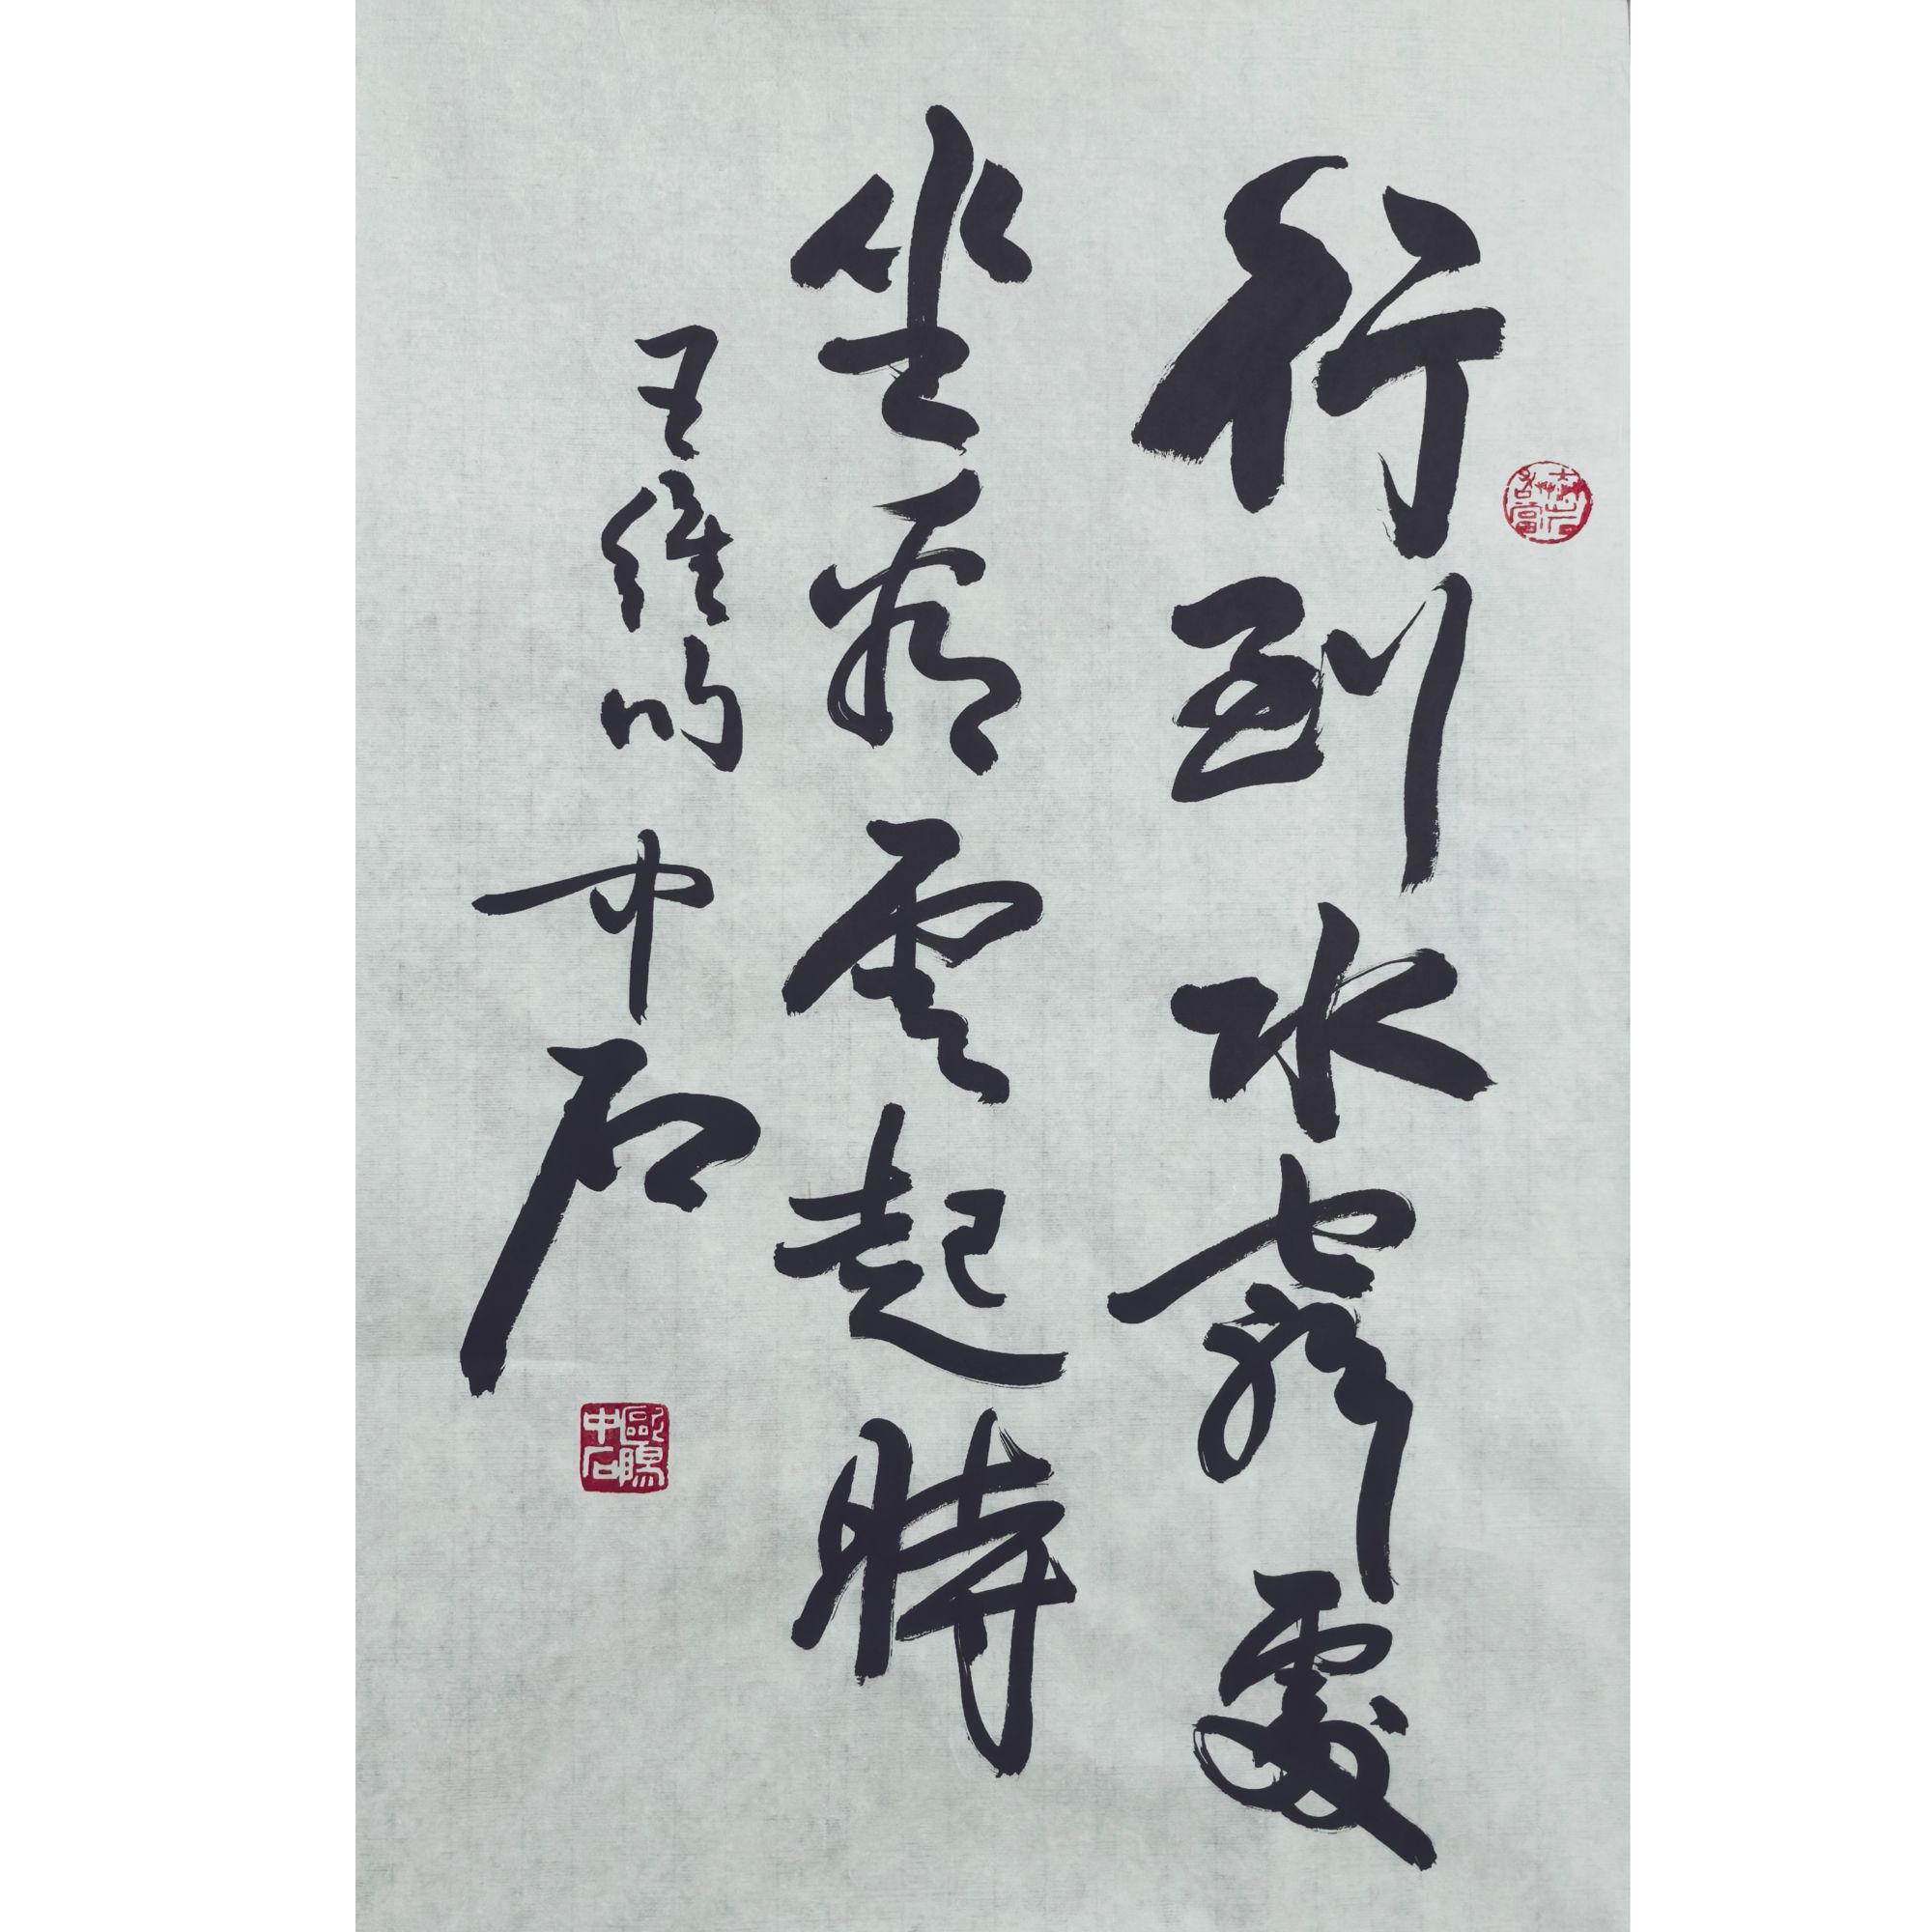 行到水窮處
坐看雲起時
王維句 中石
歐陽中石